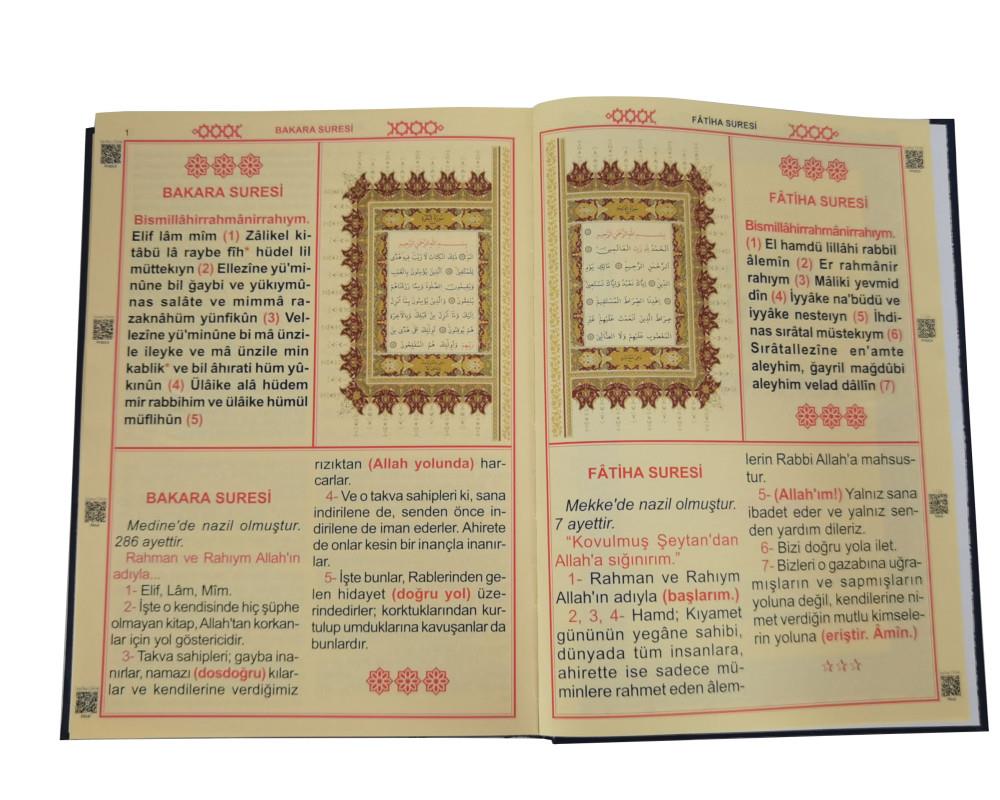 1
BAKARA SURESİ
BAKARA SURESİ
Bismillâhirrahmânirrahıym.
Elif lâm mîm (1) Zâlikel ki-
tâbü lâ raybe fîh* hüdel lil
müttekıyn (2) Ellezîne yü'mi-
nûne bil ğaybi ve yükıymû-
nas salâte ve mimmâ ra-
zaknâhüm yünfikûn (3) Vel-
lezîne yü'minûne bi mâ ünzi-
le ileyke ve mâ ünzile min
kablik* ve bil âhırati hüm yû-
kınûn (4) Ülâike alâ hüdem
mir rabbihim ve ülâike hümül
müflihûn (5)
BAKARA SURESİ
Medine'de nazil olmuştur.
286 ayettir.
Rahman ve Rahıym Allah'ın
adıyla...
1- Elif, Lâm, Mîm.
2- İşte o kendisinde hiç şüphe
olmayan kitap, Allah'tan korkan-
lar için yol göstericidir.
3- Takva sahipleri; gayba ina-
nırlar, namazı (dosdoğru) kılar-
lar ve kendilerine verdiğimiz
rızıktan (Allah yolunda) har-
carlar.
4- Ve o takva sahipleri ki, sana
indirilene de, senden önce in-
dirilene de iman ederler. Ahirete
de onlar kesin bir inançla inanır-
lar.
5- İşte bunlar, Rablerinden ge-
len hidayet (doğru yol) üze-
rindedirler; korktuklarından kur-
tulup umduklarına kavuşanlar da
bunlardır.
FÂTİHA SURESİ
FÂTİHA SURESİ
Bismillâhirrahmânirrahıym.
(1) El hamdü lillâhi rabbil
âlemîn (2) Er rahmânir
rahıym (3) Mâliki yevmid
dîn (4) İyyâke na'büdü ve
iyyâke nesteıyn (5) İhdi-
nas sırâtal müstekıym (6)
Sırâtallezîne en'amte
aleyhim, ğayril mağdûbi
aleyhim velad dâllîn (7)
FÂTİHA SURESİ
Mekke'de nazil olmuştur.
7 ayettir.
“Kovulmuş Şeytan'dan
Allah'a sığınırım.”
1- Rahman ve Rahıym
Allah'ın adıyla (başlarım.)
2, 3, 4- Hamd; Kıyamet
gününün yegâne sahibi,
dünyada tüm insanlara,
ahirette ise sadece mü-
minlere rahmet eden âlem-
lerin Rabbi Allah'a mahsus-
tur.
5- (Allah'ım!) Yalnız sana
ibadet eder ve yalnız sen-
den yardım dileriz.
6- Bizi doğru yola ilet.
7- Bizleri o gazabına uğra-
mışların ve sapmışların
yoluna değil, kendilerine ni-
met verdiğin mutlu kimsele-
rin yoluna (eriştir. Âmin.)